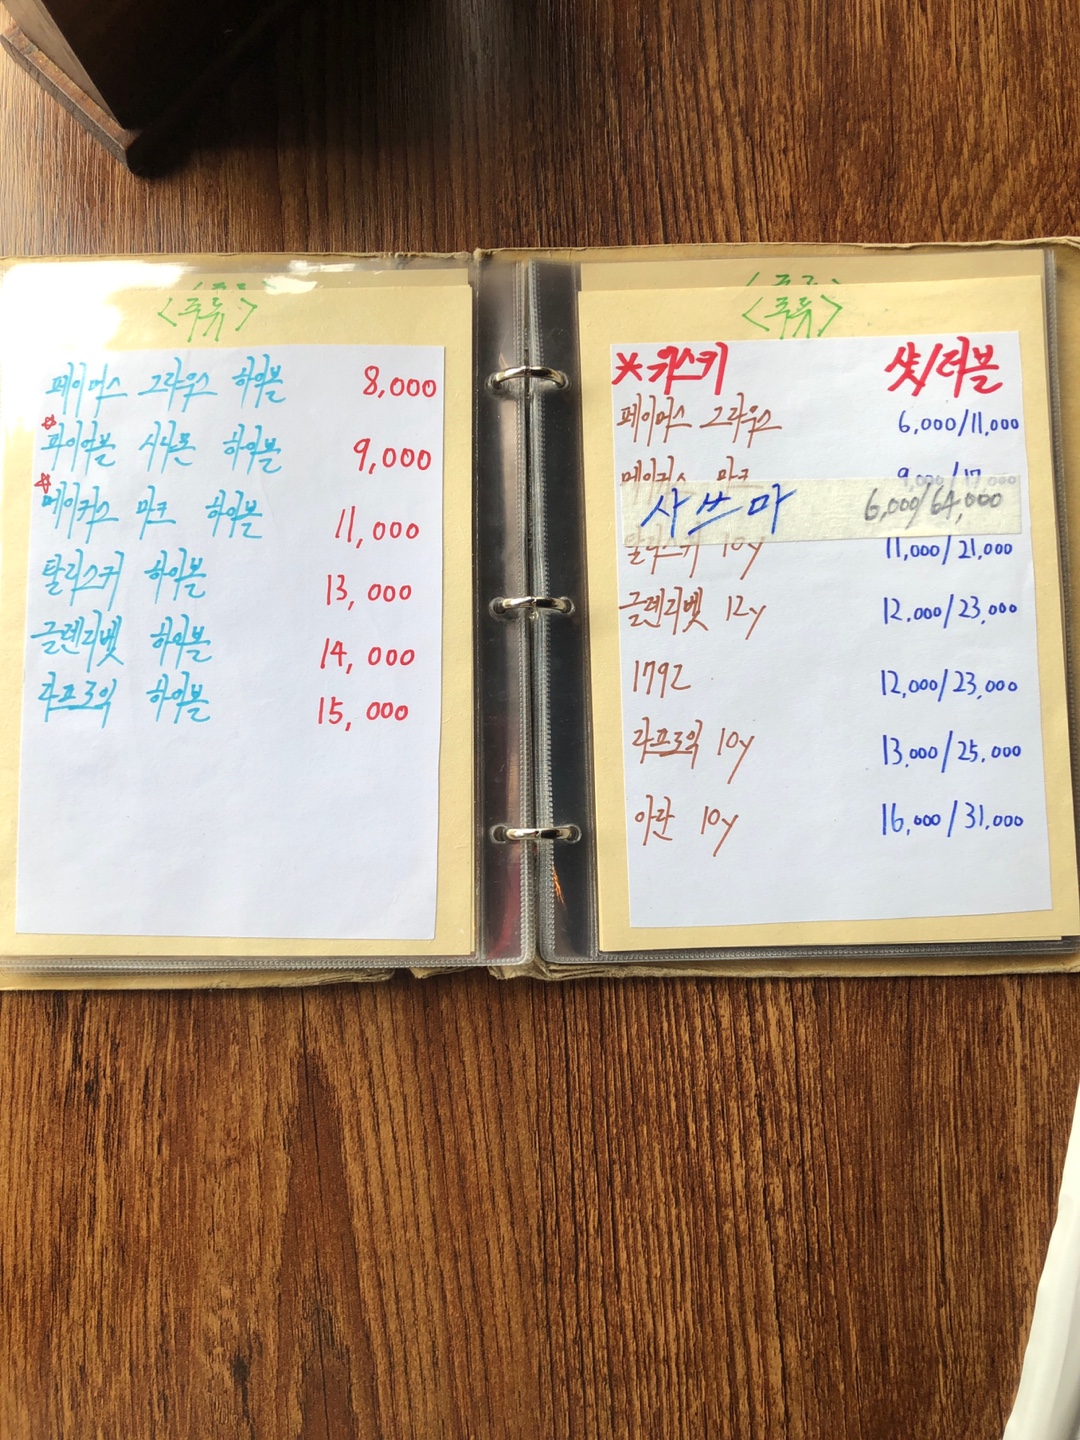 <주류>
페이머스 그라우스 하이볼 8,000
파이어볼 시나몬 하이볼 9,000
메이커스 마크 하이볼 11,000
탈리스커 하이볼 13,000
글렌리벳 하이볼 14,000
라프로익 하이볼 15,000
<주류>
*위스키 샷/더블
페이머스 그라우스 6,000/11,000
메이커스 마크 9,000/17,000
사쓰마 6,000/64,000
탈리스커 10y 11,000/21,000
글렌리벳 12y 12,000/23,000
1792 12,000/23,000
라프로익 10y 13,000/25,000
아란 10y 16,000/31,000